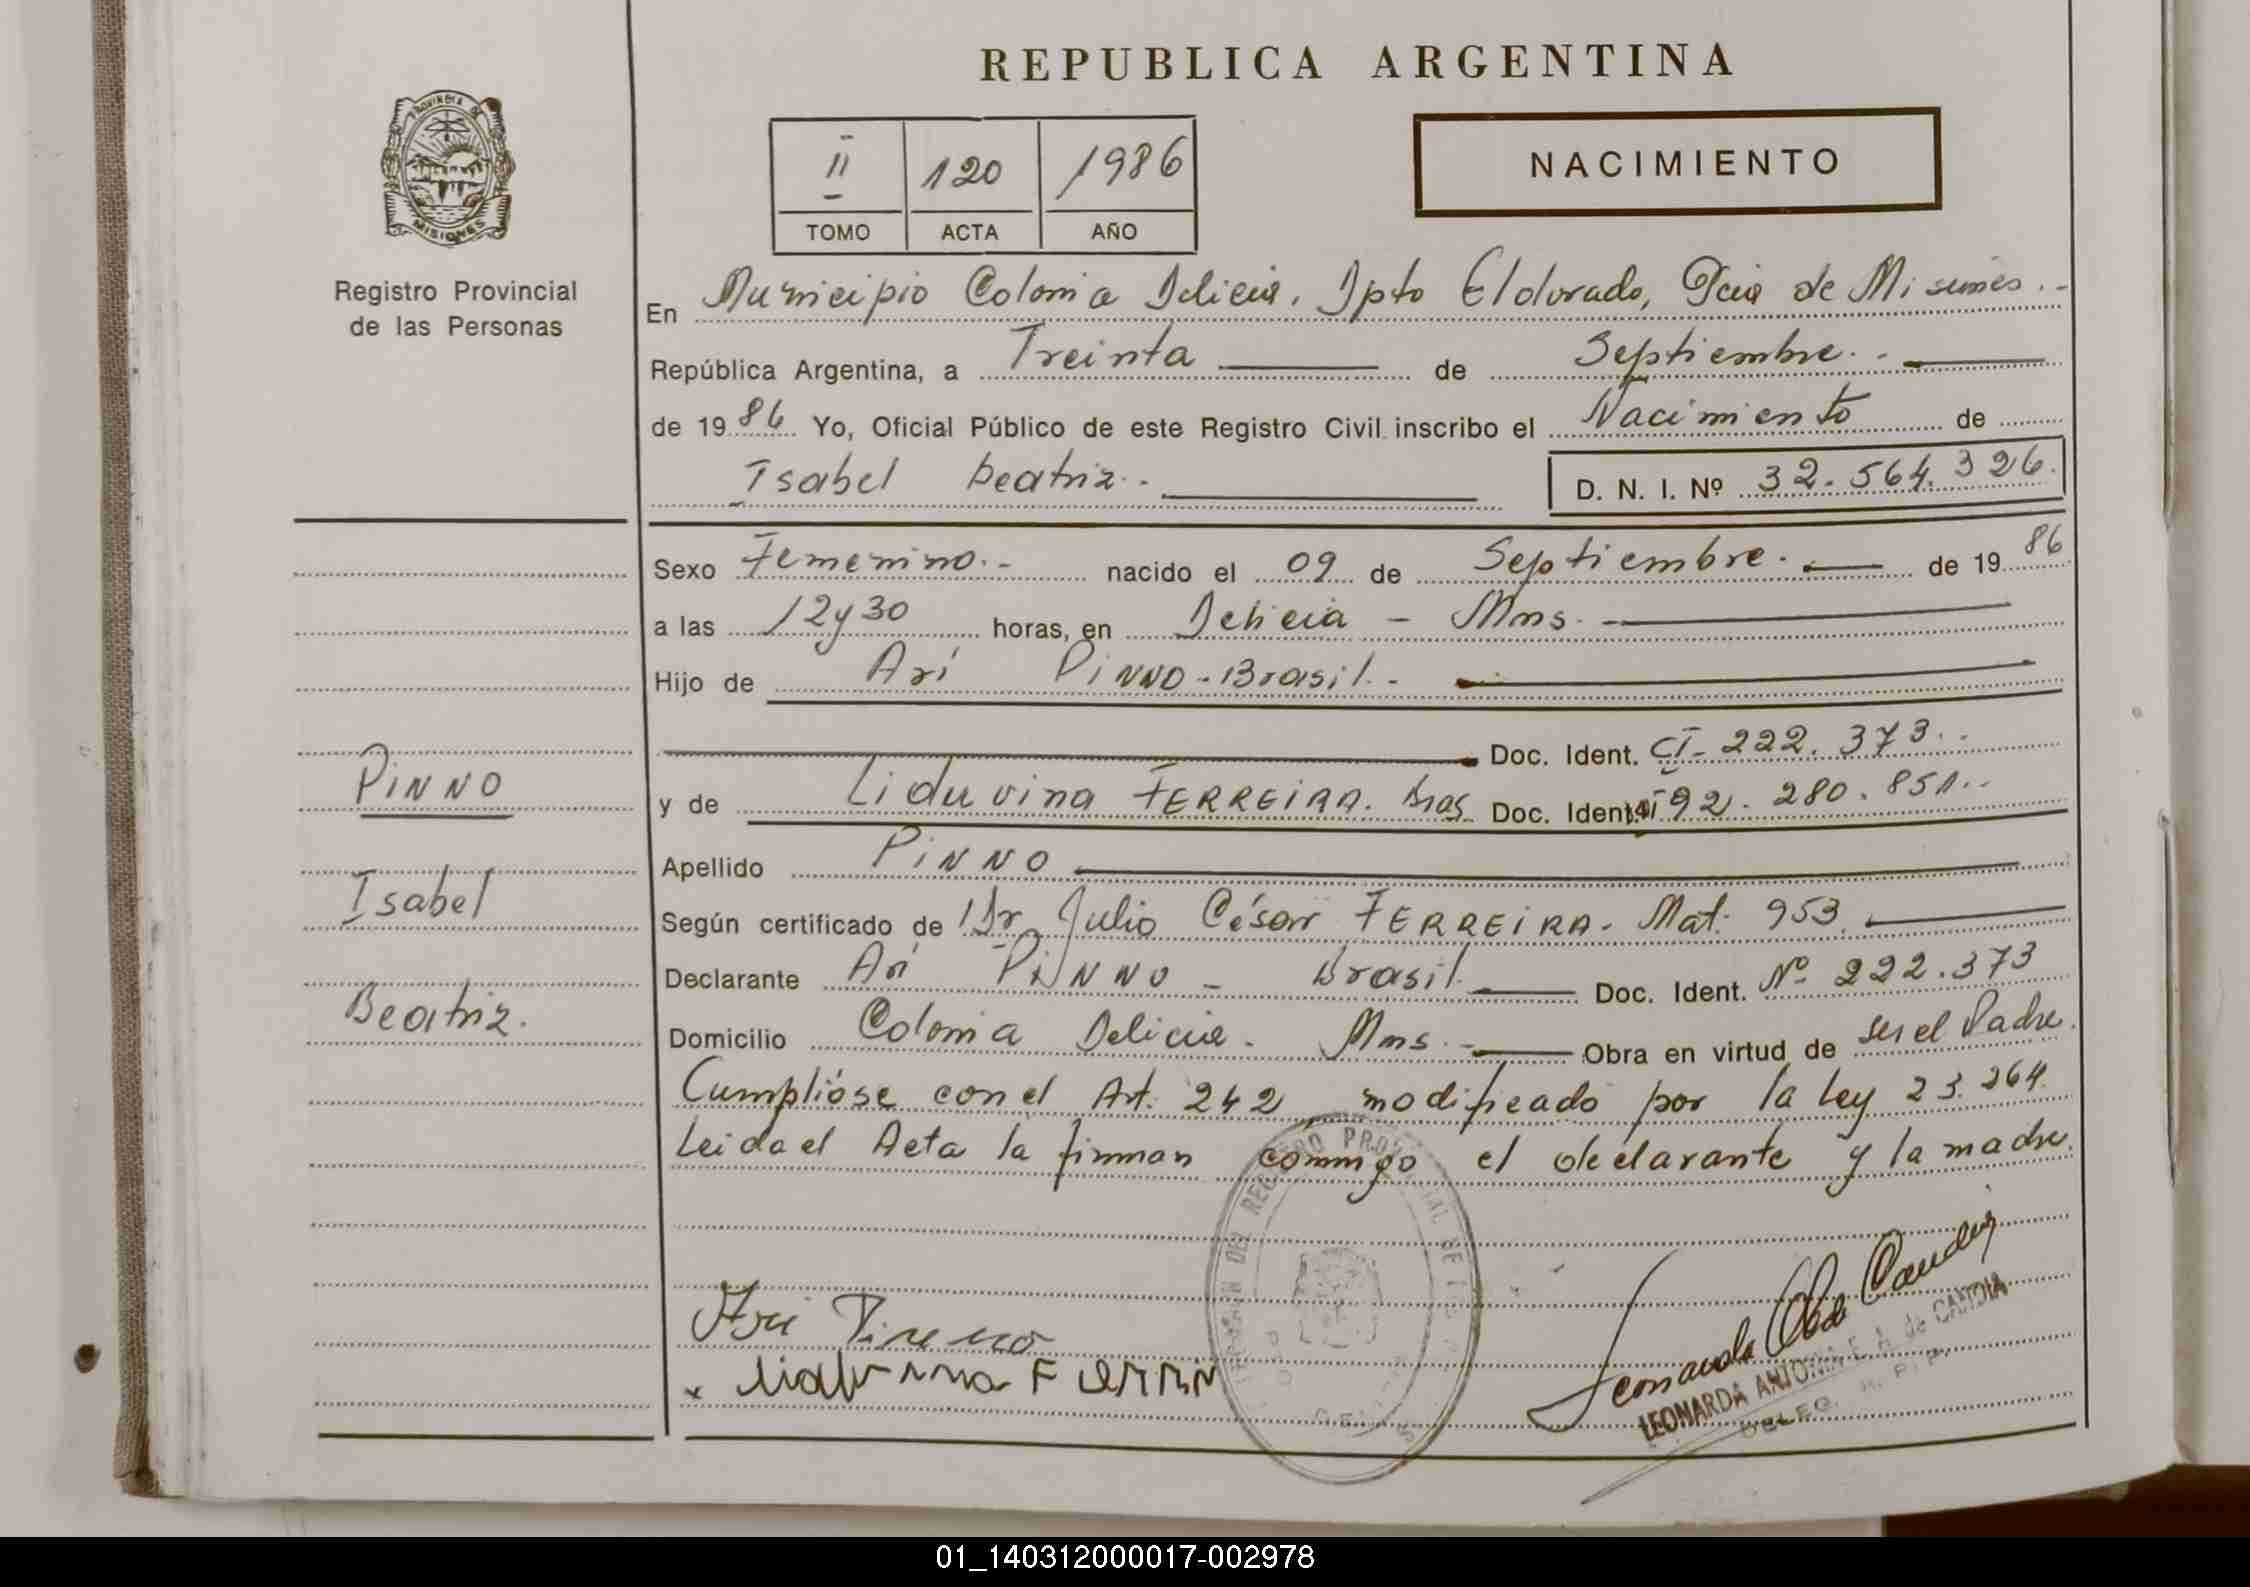 REPUBLICA ARGENTINA
PROVINCIA DE
MISIONES
Registro Provincial
de las Personas
II 120 1986
TOMO ACTA AÑO
NACIMIENTO
En Municipio Colonia Delicia, Dpto Eldorado, Pcia de Misiones.-
República Argentina, a Treinta de Septiembre.-
de 1986 Yo, Oficial Público de este Registro Civil inscribo el Nacimiento de
Isabel Beatriz.- D. N. I. Nº 32.564.326.
Sexo Femenino.- nacido el 09 de Septiembre. de 1986
a las 12y30 horas, en Delicia - Mns.
Hijo de Arí PINNO - Brasil.-
Doc. Ident. CI- 222.373.-
y de Liduvina FERREIRA. Bras Doc. Ident. CI 92.280.851.-
Apellido PINNO
Según certificado de Dr Julio César FERREIRA. Mat. 953.
Declarante Arí PINNO - Brasil. Doc. Ident. Nº 222.373
Domicilio Colonia Delicia. Mns.- Obra en virtud de ser el Padre.
Cumplióse con el Art. 242 modificado por la ley 23.264.
Leida el Acta la firman conmigo el declarante y la madre.
PINNO
Isabel
Beatriz.
Ari Pinno
LEONARDA ANTONIA E. A. de CANDIA
DELEG. R. P. P.
01_140312000017-002978